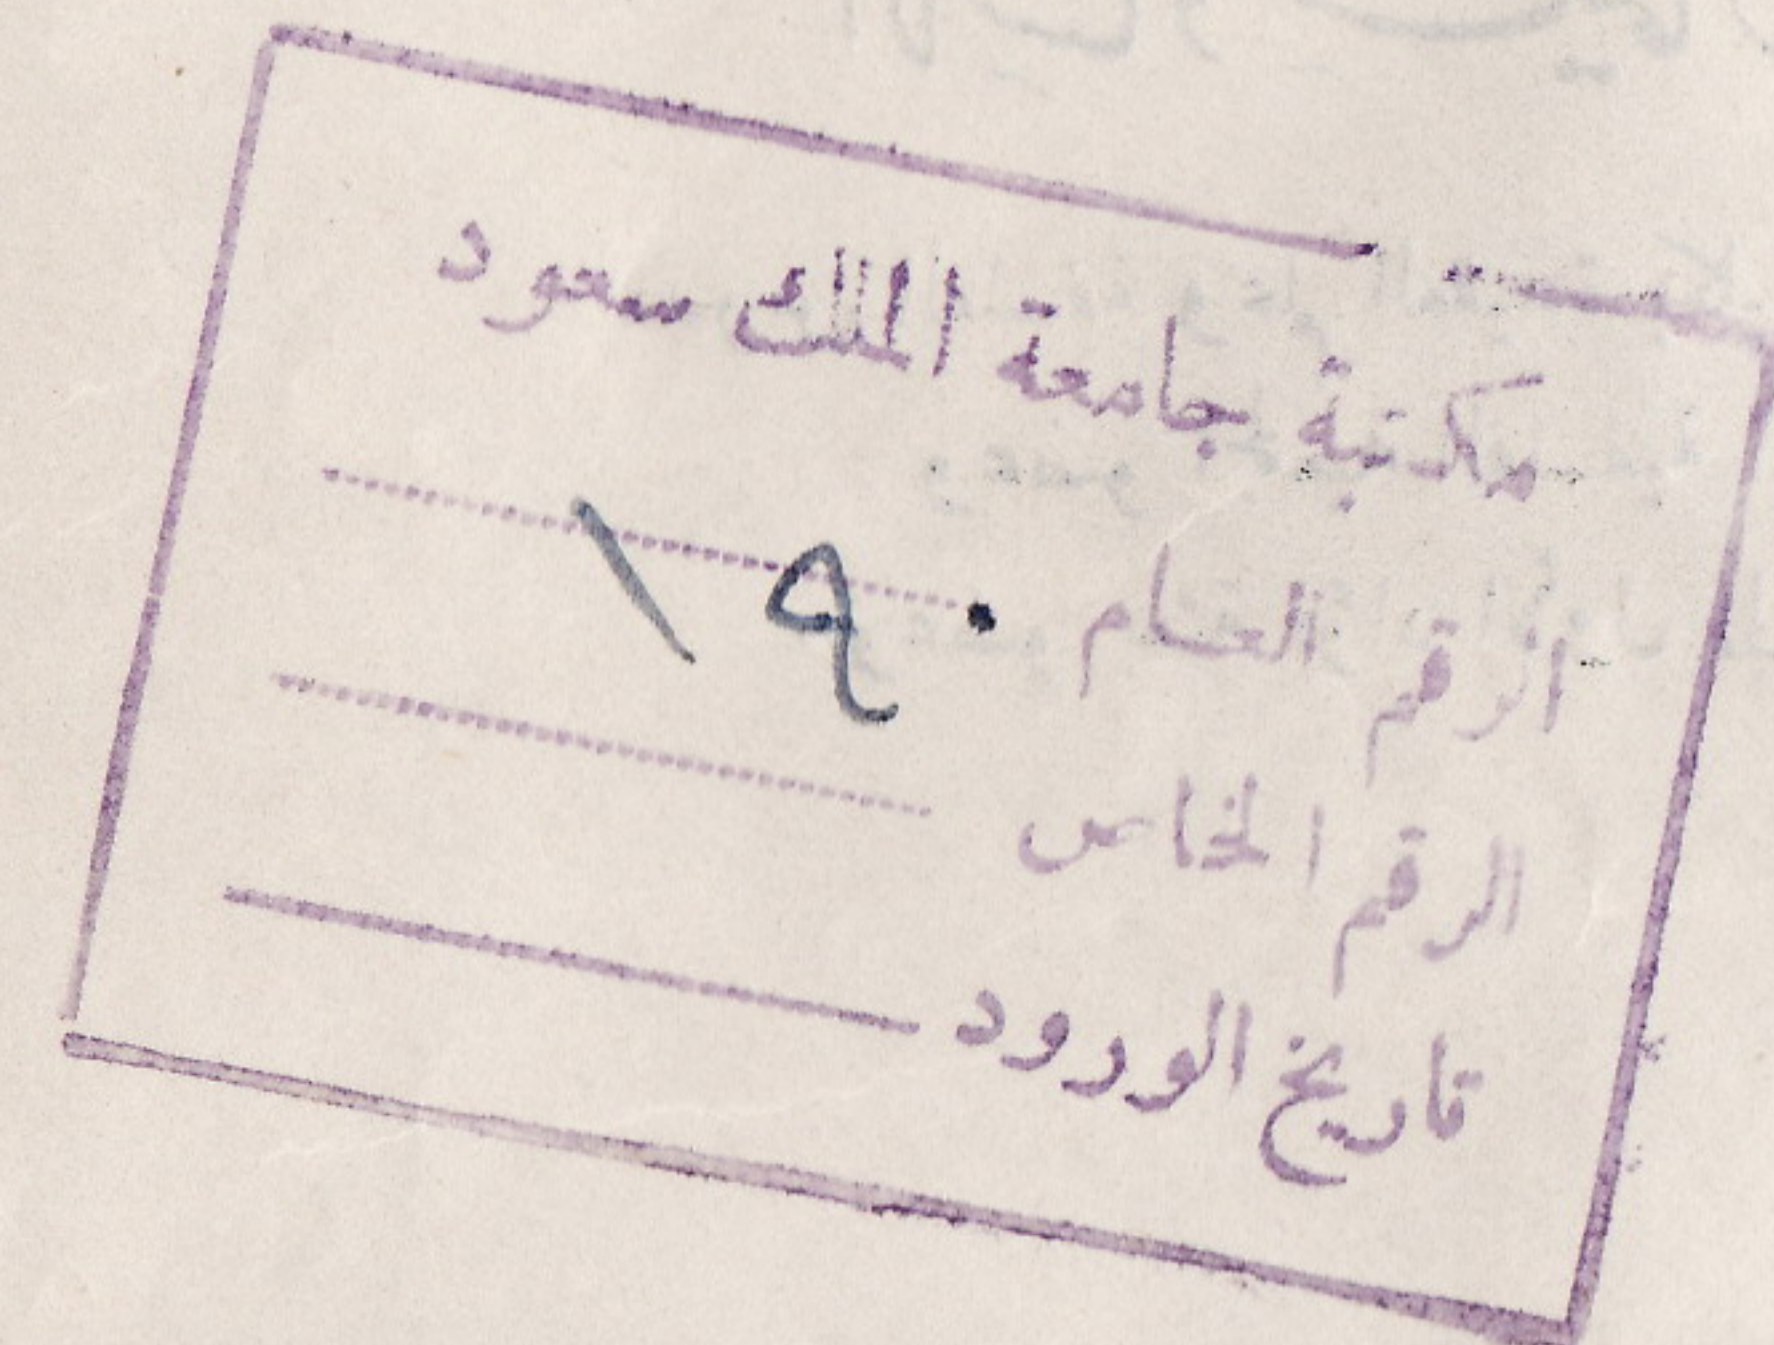 مكتبة جامعة الملك سعود
الرقم العام ١٩٠
الرقم الخاص
تاريخ الورود